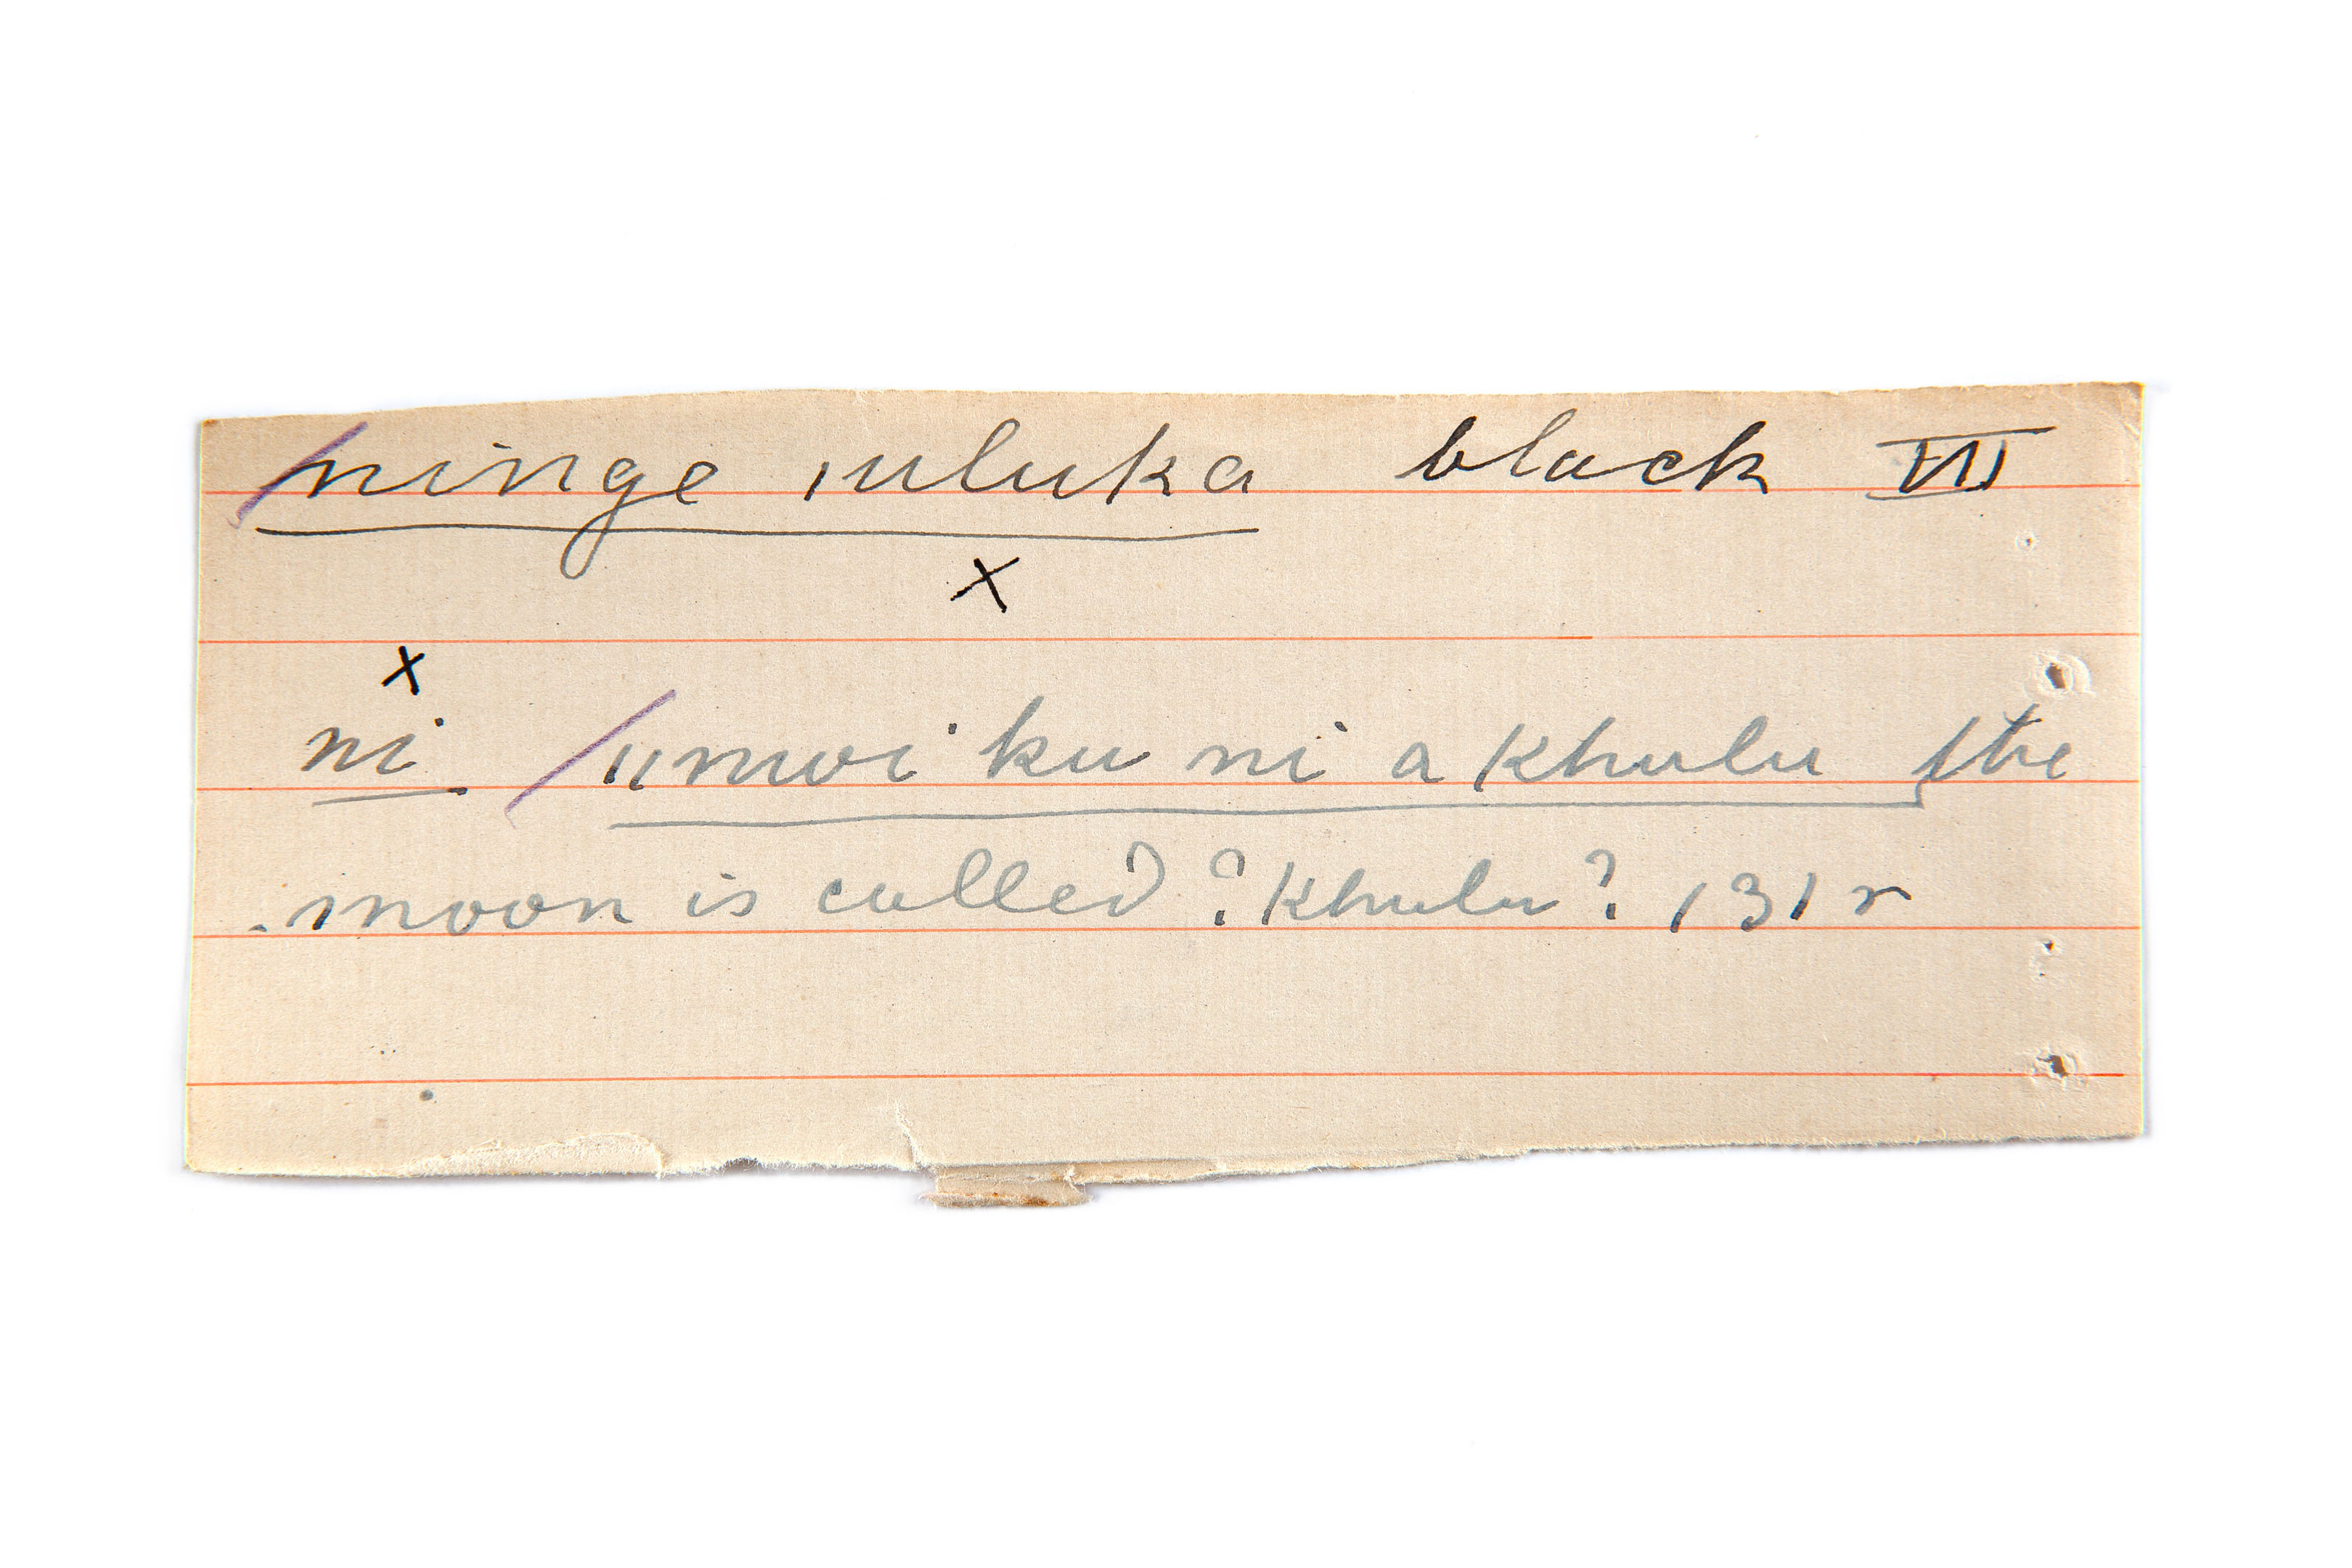 /ninge ıuluka black VII
x
x
ni /ıımoi ku ni a khulu the
moon is called ? Khulu ? 131 r